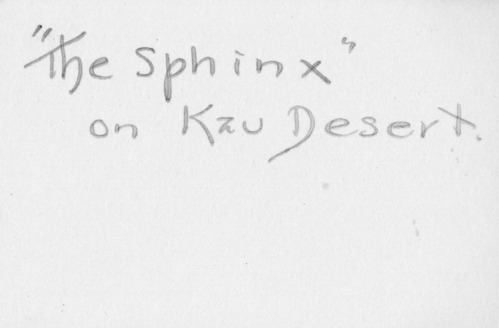 "The Sphinx"
on Kau Desert.